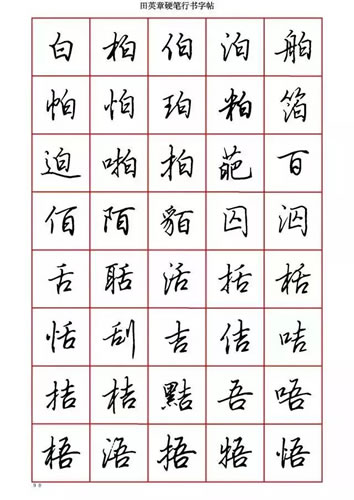 田英章硬笔行书字帖
白柏伯泊舶
帕怕珀粕箔
迫啪拍葩百
佰陌貊囚泅
舌聒活括栝
恬刮吉佶咭
拮桔黠吾唔
梧浯捂牾悟